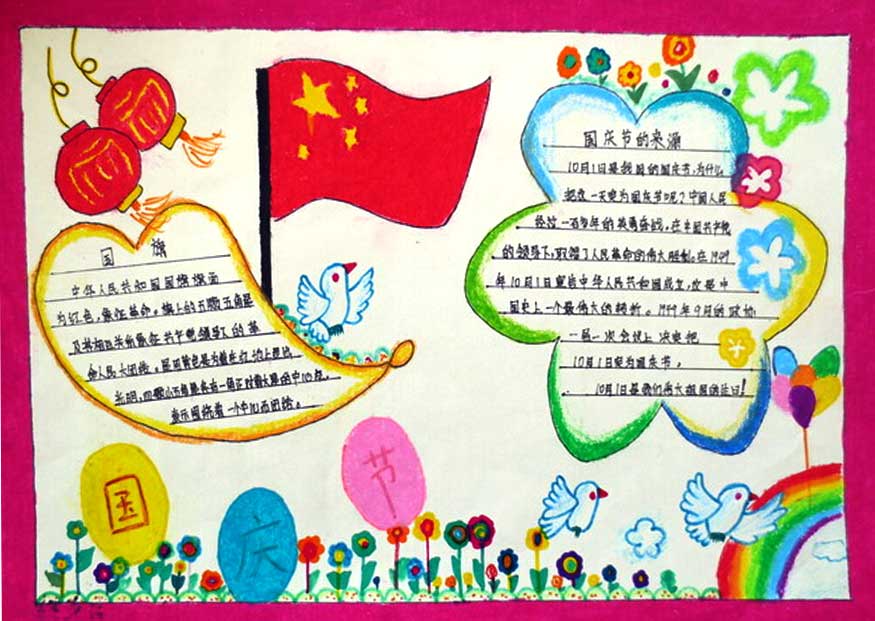 国旗
中华人民共和国国旗旗面
为红色，象征革命。旗上的五颗五角星
及其相互关系象征共产党领导人的革
命人民大团结。星用黄色是为着在红地上显出
光明，四颗小五角星各有一角正对着大星的中心点，
表示围绕着一个中心而团结。
国庆节的来源
10月1日是我国的国庆节，为什么
把这一天定为国庆节呢？中国人民
经过一百多年的英勇奋战，在中国共产党
的领导下，取得了人民革命的伟大胜利。在1949
年10月1日宣告中华人民共和国成立，这是中
国史上一个最伟大的转折。1949年9月的政协
一届一次会议上决定把
10月1日定为国庆节。
10月1日是我们伟大祖国的生日！
国
庆
节